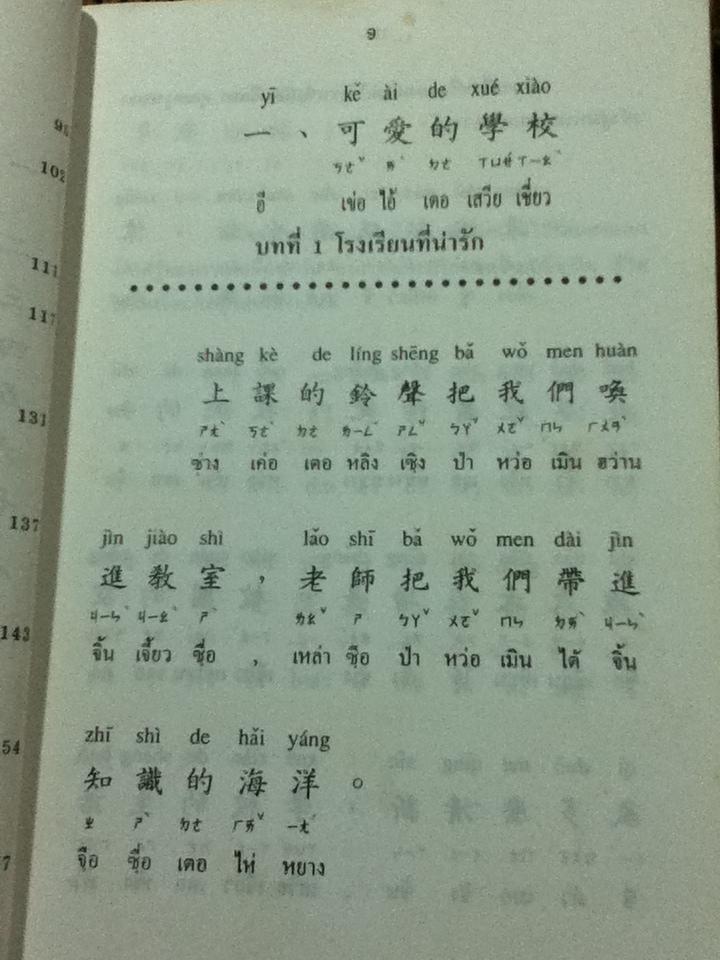 9
yī kě ài de xué xiào
一、可愛的學校
ㄎㄜˇ ㄞˋ ㄉㄜ ㄒㄩㄝˊ ㄒㄧㄠˋ
อี เข่อ ไอ้ เตอ เสวีย เชี่ยว
บทที่ 1 โรงเรียนที่น่ารัก
shàng kè de líng shēng bǎ wǒ men huàn
上課的鈴聲把我們喚
ㄕㄤˋ ㄎㄜˋ ㄉㄜ ㄌㄧㄥˋ ㄕㄥ ㄅㄚˇ ㄨㄛˇ ㄇㄣ ㄏㄨㄢˋ
ซ่าง เค่อ เตอ หลิง เซิง ป่า หว่อ เมิน ฮว่าน
jìn jiào shì lǎo shī bǎ wǒ men dài jìn
進教室，老師把我們帶進
ㄐㄧㄣˋ ㄐㄧㄠˋ ㄕˋ ㄌㄠˇ ㄕ ㄅㄚˇ ㄨㄛˇ ㄇㄣ ㄉㄞˋ ㄐㄧㄣˋ
จิ้น เจี้ยว ซื่อ , เหล่า ซือ ป่า หว่อ เมิน ไต้ จิ้น
zhī shì de hǎi yáng
知識的海洋。
ㄓ ㄕˋ ㄉㄜ ㄏㄞˇ ㄧㄤˊ
จือ ซื่อ เตอ ไห่ หยาง
102
111
117
131
137
143
54
7